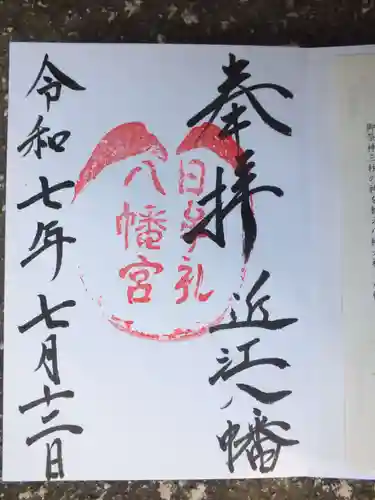 奉拝
近江八幡
日牟礼
八幡宮
令和七年七月十二日